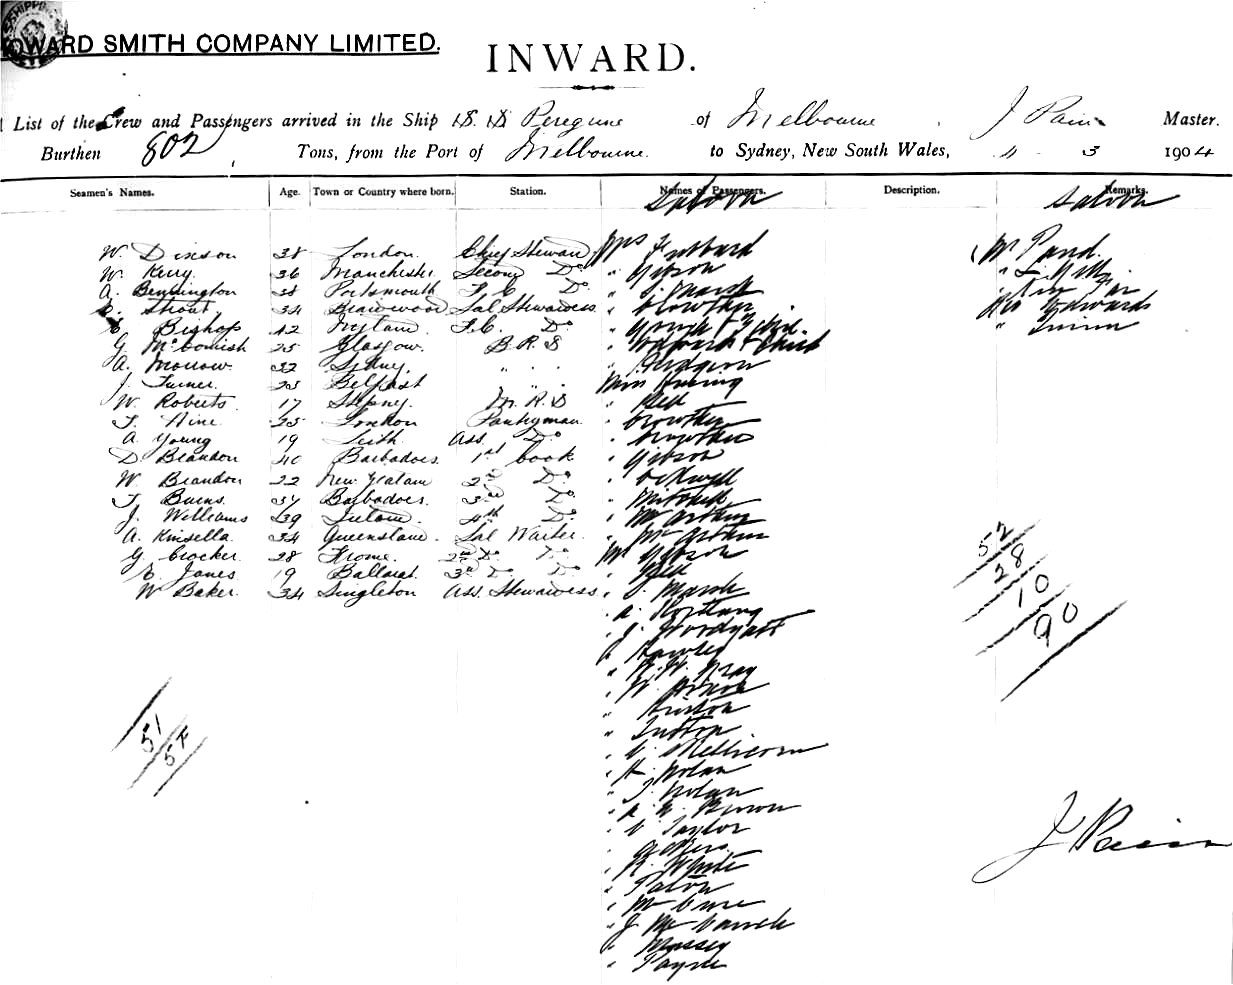 HOWARD SMITH COMPANY LIMITED.
INWARD.
List of the Crew and Passengers arrived in the Ship S.S. Peregrine of Melbourne, J Pain Master.
Burthen 802, Tons, from the Port of Melbourne. to Sydney, New South Wales, 4 - 3 1904
Seamen's Names. Age. Town or Country where born. Station. Names of Passengers. Description. Remarks.
Saloon Saloon
W. Dixson 38 London Chief Steward Mrs Hubbard Mr Pand.
W. Kerry 36 Manchester Second Do " Gibson
A. Bennington 38 Portsmouth F.C. Do " S. Marsh
E. Strout 34 Braidwood Sal Stewardess " Clowther Mrs Edwards
E. Bishop 42 England F.C. Do "
G. McCornish 25 Glasgow. B.R.S " Edwards & Child
A. Morrow 32 Sydney. " " " Hudgson
J. Turner. 23 Belfast " " Miss
W. Roberts. 17 Stepney. M.R.S " Bell
F. Nine 25 London Pantryman " Crowther
A. Young 19 Leith Ass. Do " Crowther
D. Brandon 40 Barbadoes. 1st Cook " Gibson
W. Brandon 22 New Zealand 2nd Do "
T. Burns. 37 Barbadoes. 3rd Do " Mitchell
J. Williams 39 4th Do " McArthur
A. Kinsella 34 Queensland. Sal Waiter. " McArthur
G. Crocker. 28 Frome. 2nd Do Do Mr Gibson
E. Jones 19 Ballarat. 3rd Do Do " Bell
W Baker. 34 Singleton Ass. Stewardess " S. Marsh
52
28
10
90
" J. Woodyatt
" Hawley
" R.W. Gray
" W.
" Burton
" Sutton
" C. Mellicorn
" H. Nolan
" J. Nolan
" A. W. Brown
" C. Taylor
" R. White
" Paton
" McClure
" J McCormick
" Massey
" Payne
51
54
J Pain